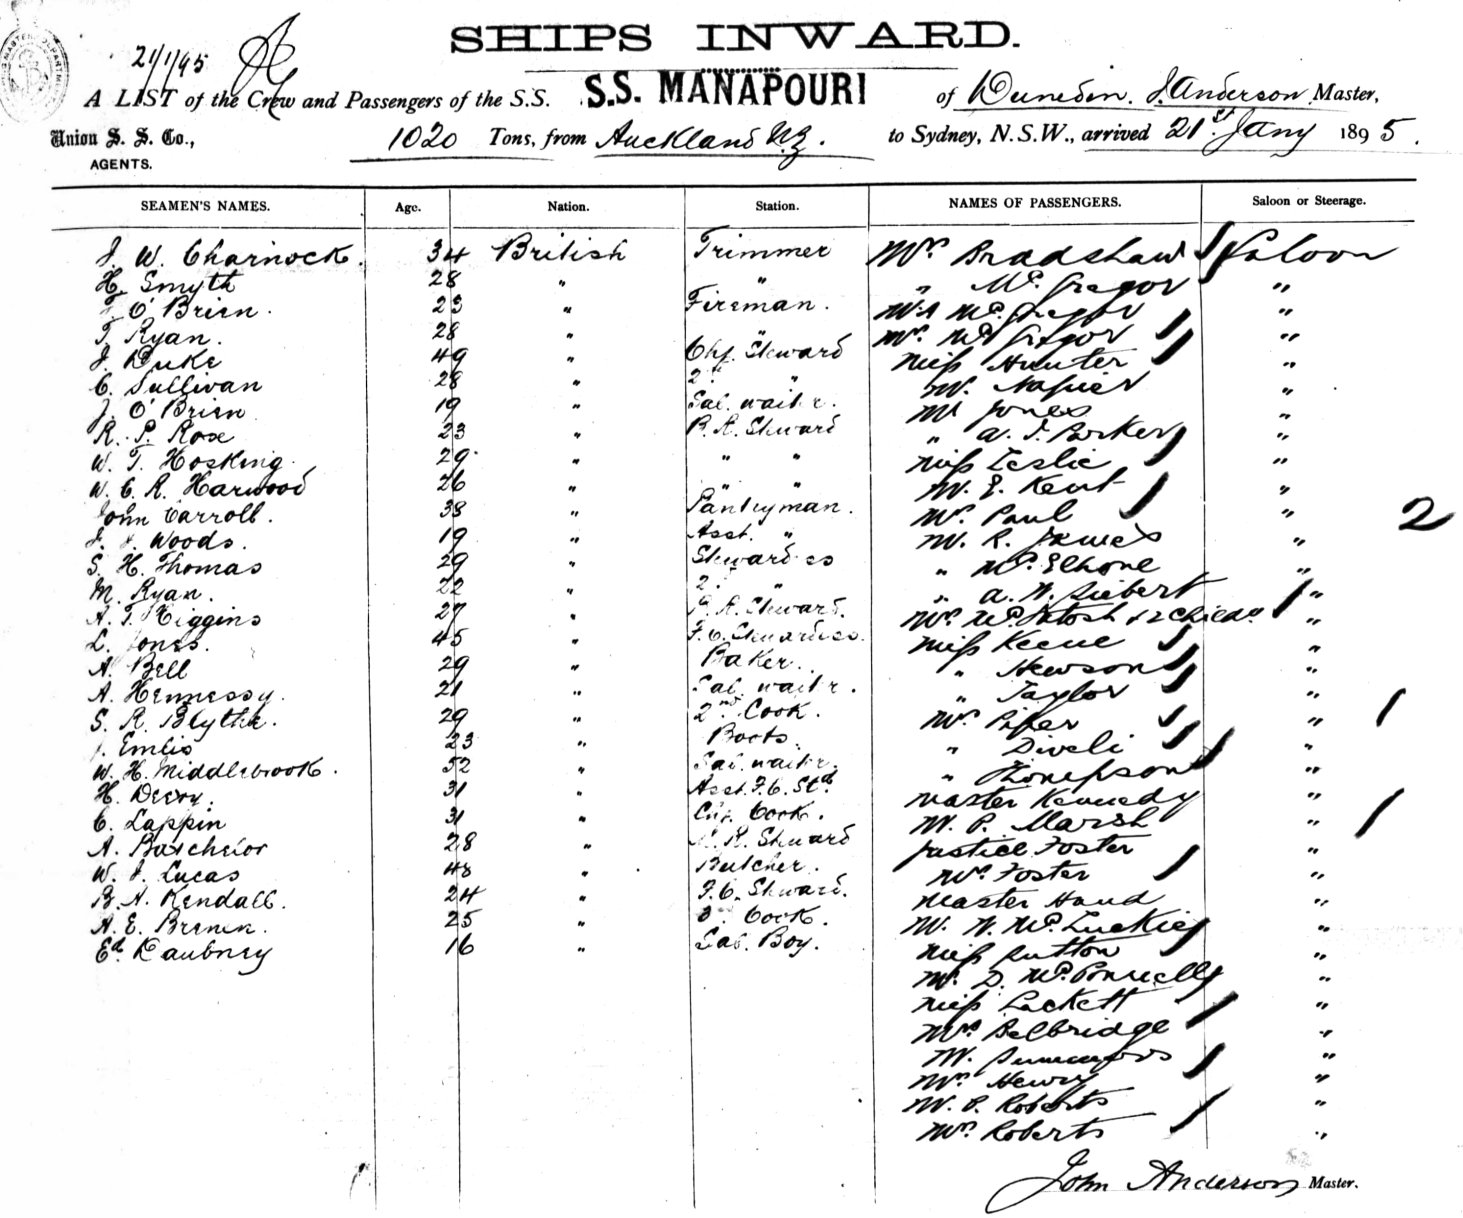 SHIPS INWARD.
21/1/95
A LIST of the Crew and Passengers of the S.S. S.S. MANAPOURI of Dunedin. J. Anderson Master,
Union S. S. Co., 1020 Tons, from Auckland N.Z. to Sydney, N.S.W., arrived 21st Jany 1895.
AGENTS.
SEAMEN'S NAMES. Age. Nation. Station. NAMES OF PASSENGERS. Saloon or Steerage.
J. W. Charnock. 34 British Trimmer Mrs Bradshaw Saloon
H. Smyth 28 " " " McGregor "
O'Brien. 23 " Fireman. McGregor "
T. Ryan. 28 " " McGregor "
J. Duke 49 " Chf. Steward Miss Hunter "
C. Sullivan 28 " 2 " Mr. Napier "
J. O'Brien 19 " Sal. waiter. Mr Jones "
R. P. Rose 23 " B. R. Steward " A. J. Parker "
W. T. Hosking. 29 " " " Miss Leslie "
W. C. R. Harwood 26 " " " M. E. Kent "
John Carroll. 38 " Pantryman. Mrs. Paul " 2
Woods. 19 " Asst. " M. R. James "
S. H. Thomas 29 " Stewardess " "
M. Ryan. 22 " 2 " " A. W. Siebert "
A. T. Higgins 27 " Steward. McIntosh & 2 child "
L. Jones. 45 " F. C. Stewardess. Miss Keene "
A. Bell 29 " Baker. " Hewson "
A. Hennessy. 21 " Sal. waiter. " Taylor "
S. R. Blythe. 29 " 2nd Cook. Mrs Piper "
Emlis 23 " Boots. " "
W. H. Middlebrook. 52 " Sal. waiter. " Thompson "
H. 31 " Asst. F. C. Std Master Kennedy "
C. Lappin 31 " Cook. M. P. Marsh "
A. Batchelor 28 " Steward Justice Foster "
W. J. Lucas 48 " Butcher. Mrs Foster "
B. A. Kendall. 24 " F. C. Steward. Master Hand "
A. E. 25 " 3 Cook. M. W. McLuckie "
Ed. Daubney 16 " Boy. Miss Sutton "
M. D. "
Miss Lockett "
Mrs Belbridge "
M. Summers "
Mrs Henry "
M. P. Roberts "
Mrs. Roberts "
John Anderson Master.